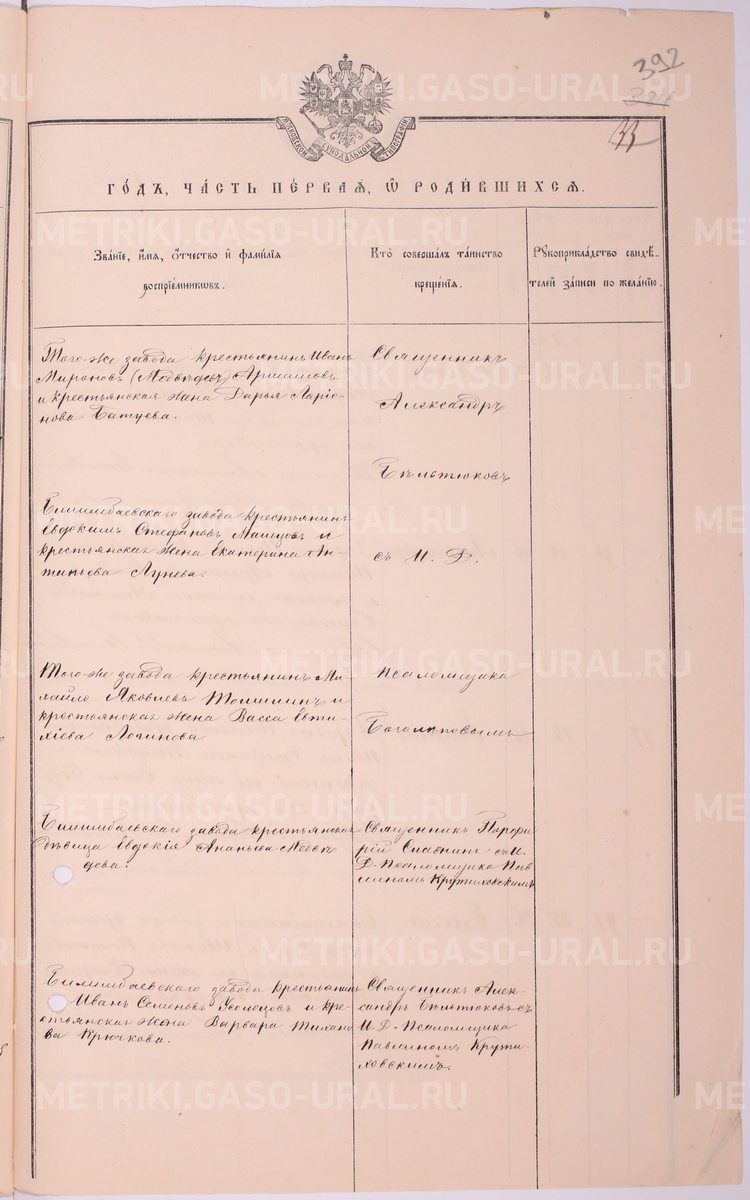 392
33
МОСКОВСКОЙ СѴНОДАЛЬНОЙ ТИПОГРАФІИ
ГО́ДЪ, ЧА́СТЬ ПЕ́РВАЯ, Ѽ РОДИ́ВШИХСЯ.
Зва́нїе, и҆́мѧ, ѻ҆́тчество и҆ фами́лїѧ
воспрїе́мникѡвъ.
Кто̀ соверша́лъ та́инство
креще́нїѧ.
Рꙋкоприкла́дство свидѣ́-
телей за́писи по жела́нїю.
Того-же завода крестьянинъ Иванъ
Мироновъ Аришиловъ
и крестьянская жена Дарья Ларіо-
нова Батуева.
Священникъ
Александръ
Бѣлетюковъ
съ И. Д.
псаломщика
Боголѣповымъ
Билимбаевскаго завода крестьянинъ
Евдокимъ Стефановъ Мальцовъ и
крестьянская жена Екатерина Ан-
типьева Лунева.
Того-же завода крестьянинъ Ми-
хайло Яковлевъ и
крестьянская жена Васса Евти-
хіева Логинова
Билимбаевскаго завода крестьянская
дѣвица Евдокія Ананьева
дева.
Священникъ Порфи-
рій Славнинъ съ И.
Д. Псаломщика Пав-
линомъ Крутиховскимъ
Билимбаевскаго завода крестьянинъ
Иванъ Семеновъ Усольцовъ и кре-
стьянская жена Варвара Тихано
ва Крючкова.
Священникъ Алек-
сандръ Бѣлетюковъ съ
И. Д. Псаломщика
Павлиномъ Крути-
ховскимъ.
METRIKI.GASO-URAL.RU